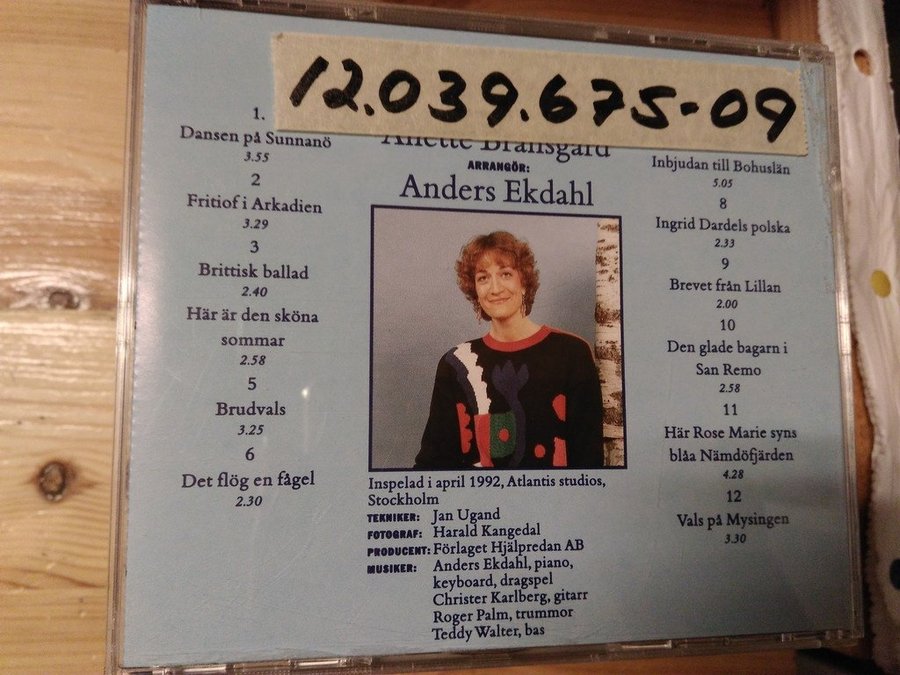 12.039.675-09
1.
Dansen på Sunnanö
3.55
2
Fritiof i Arkadien
3.29
3
Brittisk ballad
2.40
Här är den sköna
sommar
2.58
5
Brudvals
3.25
6
Det flög en fågel
2.30
Anette
ARRANGÖR:
Anders Ekdahl
Inspelad i april 1992, Atlantis studios,
Stockholm
TEKNIKER: Jan Ugand
FOTOGRAF: Harald Kangedal
PRODUCENT: Förlaget Hjälpredan AB
MUSIKER: Anders Ekdahl, piano,
keyboard, dragspel
Christer Karlberg, gitarr
Roger Palm, trummor
Teddy Walter, bas
Inbjudan till Bohuslän
5.05
8
Ingrid Dardels polska
2.33
9
Brevet från Lillan
2.00
10
Den glade bagarn i
San Remo
2.58
11
Här Rose Marie syns
blåa Nämdöfjärden
4.28
12
Vals på Mysingen
3.30